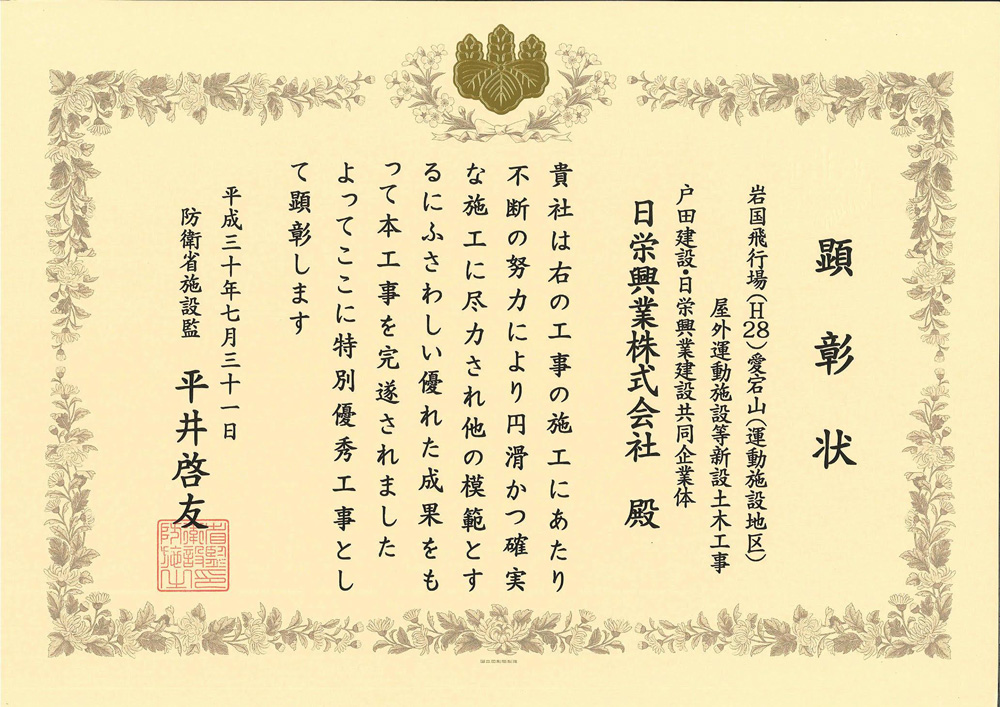 顕彰状
岩国飛行場(H28)愛宕山(運動施設地区)
屋外運動施設等新設土木工事
戸田建設・日栄興業建設共同企業体
日栄興業株式会社 殿
貴社は右の工事の施工にあたり
不断の努力により円滑かつ確実
な施工に尽力され他の模範とす
るにふさわしい優れた成果をも
って本工事を完遂されました
よってここに特別優秀工事とし
て顕彰します
平成三十年七月三十一日
防衛省施設監 平井啓友